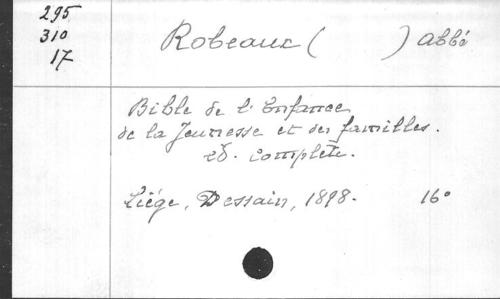 295
310
17
Robeaux ( ) abbé
Bible de l'Enfance
de la Jeunesse et des familles.
éd. complète.
Liége, Dessain, 1898. 16°